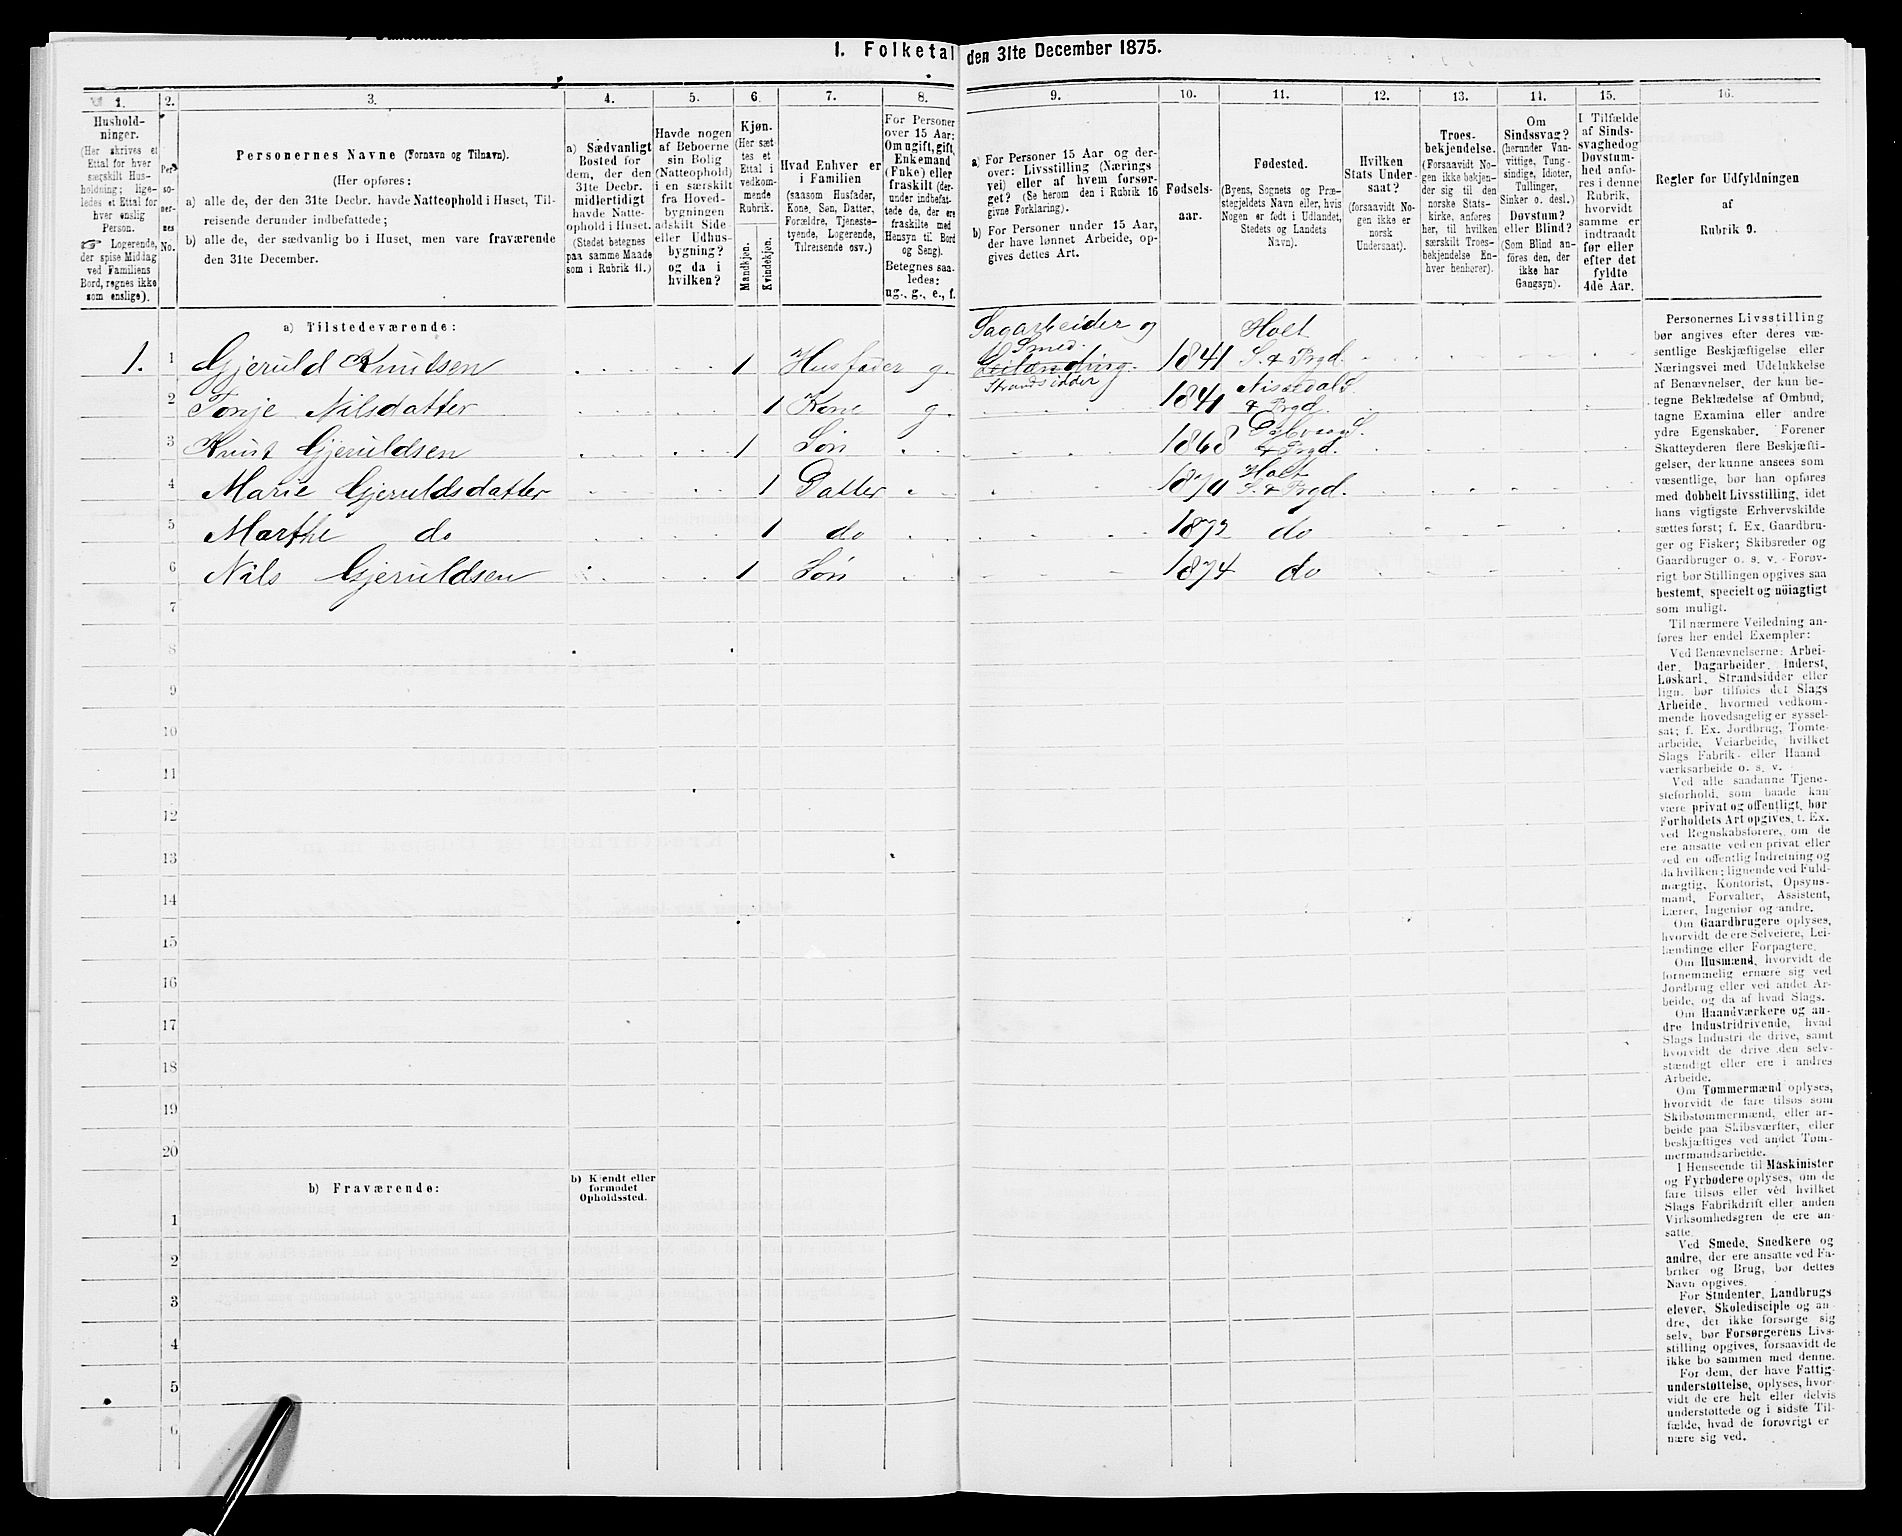 I. Folketal den 31te December 1875.
1. 2. 3. 4. 5. 6. 7. 8. 9. 10. 11. 12. 13. 14. 15. 16.
Hushold-
ninger.
(Her skrives et
Ettal for hver
særskilt Hus-
holdning; lige-
ledes et Ettal for
hver enslig
Person.
☞ Logerende,
der spise Middag
ved Familiens
Bord, regnes ikke
som enslige).
Per-
so-
ner-
nes
No.
Personernes Navne (Fornavn og Tilnavn).
(Her opføres:
a) alle de, der den 31te Decbr. havde Natteophold i Huset, Til-
reisende derunder indbefattede;
b) alle de, der sædvanlig bo i Huset, men vare fraværende
den 31te December.
a) Sædvanligt
Bosted for
dem, der den
31te Decbr.
midlertidigt
havde Natte-
ophold i Huset.
(Stedet betegnes
paa samme Maade
som i Rubrik 11.)
Havde nogen
af Beboerne
sin Bolig
(Natteophold)
i en særskilt
fra Hoved-
bygningen
adskilt Side-
eller Udhus-
bygning?
og da i
hvilken?
Kjøn.
(Her sæt-
tes et
Ettal i
vedkom-
mende
Rubrik.
Mandkjøn.
Kvindekjøn.
Hvad Enhver er
i Familien
(saasom Husfader,
Kone, Søn, Datter,
Forældre, Tjeneste-
tyende, Logerende,
Tilreisende osv.)
For Personer
over 15 Aar:
Om ugift, gift,
Enkemand
(Enke) eller
fraskilt (der-
under indbefat-
tede de, der ere
fraskilte med
Hensyn til Bord
og Seng).
Betegnes saa-
ledes:
ug., g., e., f.
a) For Personer 15 Aar og der-
over: Livsstilling (Nærings-
vei) eller af hvem forsør-
get? (Se herom den i Rubrik 16
givne Forklaring).
b) For Personer under 15 Aar,
der have lønnet Arbeide, op-
gives dettes Art.
Fødsels-
aar.
Fødested.
(Byens, Sognets og Præ-
stegjeldets Navn eller, hvis
Nogen er født i Udlandet,
Stedets og Landets
Navn).
Hvilken
Stats Under-
saat?
(forsaavidt No-
gen ikke er
norsk
Undersaat).
Troes-
bekjendelse.
(Forsaavidt No-
gen ikke bekjen-
der sig til den
norske Stats-
kirke, anføres
her, til hvilken
særskilt Troes-
bekjendelse En-
hver henhører).
Om
Sindssvag?
(herunder Van-
vittige, Tung-
sindige, Idioter,
Tullinger,
Sinker o. desl.)
Døvstum?
eller Blind?
(Som Blind an-
føres den, der
ikke har
Gangsyn).
I Tilfælde
af Sinds-
svaghed og
Døvstum-
hed anfø-
res i denne
Rubrik,
hvorvidt
samme er
indtraadt
før eller
efter det
fyldte
4de Aar.
Regler for Udfyldningen
af
Rubrik 9.
a) Tilstedeværende:
Sagarbeider og
Smed.
Strandsidder
1. 1 Gjeruld Knutsen 1 Husfader g. Leilænding. 1841 Holt S. & Prgd.
2 Tonje Nilsdatter 1 Kone g 1841 Nissedals & Prgd.
3 Knut Gjeruldsen 1 Søn 1868 S. & Prgd.
4 Marie Gjeruldsdatter 1 Datter 1870 Holt S. & Prgd.
5 Marthe do 1 do 1872 do
6 Nils Gjeruldsen 1 Søn 1874 do
7
8
9
10
11
12
13
14
15
16
17
18
19
20
b) Fraværende:
b) Kjendt eller
formodet
Opholdssted.
1
2
3
4
5
6
Personernes Livsstilling
bør angives efter deres væ-
sentlige Beskjæftigelse eller
Næringsvei med Udelukkelse
af Benævnelser, der kun be-
tegne Beklædelse af Ombud,
tagne Examina eller andre
ydre Egenskaber. Forener
Skatteyderen flere Beskjæfti-
gelser, der kunne ansees som
væsentlige, bør han opføres
med dobbelt Livsstilling, idet
hans vigtigste Erhvervskilde
sættes først; f. Ex. Gaardbru-
ger og Fisker; Skibsreder og
Gaardbruger o. s. v. Forøv-
rigt bør Stillingen opgives saa
bestemt, specielt og nöiagtigt
som muligt.
Til nærmere Veiledning an-
føres her endel Exempler:
Ved Benævnelserne: Arbei-
der, Dagarbeider, Inderst,
Løskarl, Strandsidder eller
lign. bør tilføies det Slags
Arbeide, hvormed vedkom-
mende hovedsagelig er syssel-
sat; f. Ex. Jordbrug, Tomte-
arbeide, Veiarbeide, hvilket
Slags Fabrik- eller Haand
værksarbeide o. s. v.
Ved alle saadanne Tjene-
steforhold, som baade kan
være privat og offentligt, bør
Forholdets Art opgives, t. Ex.
ved Regnskabsførere, om de
ere ansatte ved en privat eller
ved en offentlig Indretning og
da hvilken; lignende ved Fuld-
mægtig, Kontorist, Opsyns-
mand, Forvalter, Assistent,
Lærer, Ingeniør og andre.
Om Gaardbrugere oplyses,
hvorvidt de ere Selveiere, Lei-
lændinge eller Forpagtere.
Om Husmænd, hvorvidt de
fornemmelig ernære sig ved
Jordbrug eller ved andet Ar-
beide, og da af hvad Slags.
Om Haandværkere og an-
dre Industridrivende, hvad
Slags Industri de drive, samt
hvorvidt de drive den selv-
stændigt eller ere i andres
Arbeide.
Om Tømmermænd oplyses,
hvorvidt de fare tilsøs som
Skibstømmermænd, eller ar-
beide paa Skibsværfter, eller
beskjæftiges ved andet Tøm-
mermandsarbeide.
I Henseende til Maskinister
og Fyrbødere oplyses, om de
fare tilsøs eller ved hvilket
Slags Fabrikdrift eller anden
Virksomhedsgren de ere an-
satte.
Ved Smede, Snedkere og
andre, der ere ansatte ved Fa-
briker og Brug, bør dettes
Navn opgives.
For Studenter, Landbrugs
elever, Skoledisciple og an-
dre, det ikke forsørge sig
selv, bør Forsørgerens Livs-
stilling opgives, forsaavidt de
ikke bo sammen med denne.
For dem, der have Fattig-
understøttelse, oplyses, hvor-
vidt de ere helt eller delvis
understøttede og i sidste Til-
fælde, hvad de forøvrigt er
nære sig ved.